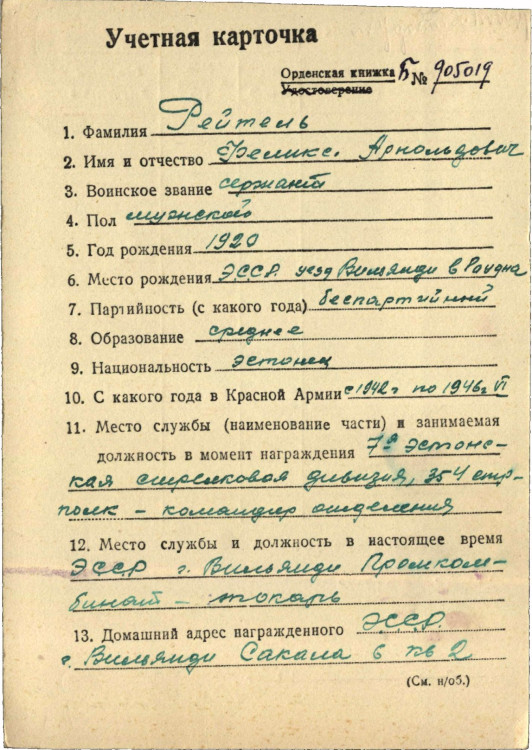 Учетная карточка
Орденская книжка Б № 905019
Удостоверение
1. Фамилия Рейтель
2. Имя и отчество Феликс. Арнольдович
3. Воинское звание сержант
4. Пол мужской
5. Год рождения 1920
6. Место рождения ЭССР уезд Вильянди в Раудна
7. Партийность (с какого года) беспартийный
8. Образование среднее
9. Национальность эстонец
10. С какого года в Красной Армии с 1942 г по 1946 г VI
11. Место службы (наименование части) и занимаемая
должность в момент награждения 7я Эстонс-
кая стрелковая дивизия, 354 стр.
полк – командир отделения
12. Место службы и должность в настоящее время
ЭССР г. Вильянди Промком-
бинат – токарь
13. Домашний адрес награжденного ЭССР.
г. Вильянди Сакала 6 кв 2
(См. н/об.)